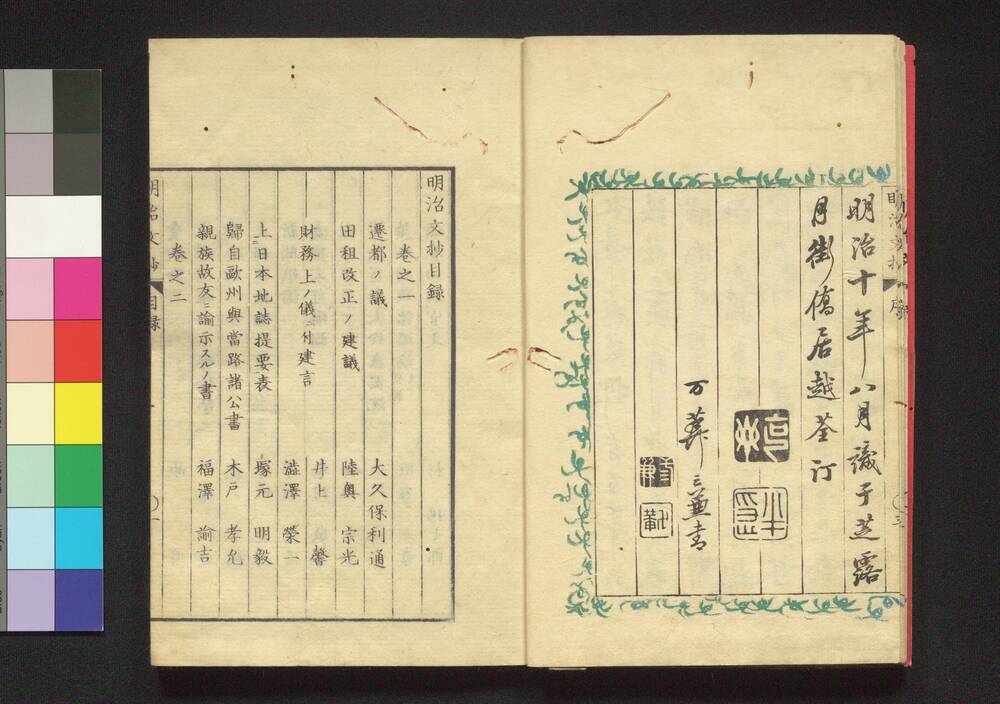 明治十年八月識于芝露
月街僑居越荃訂
明治文抄
序
三
明治文抄目録
巻之一
遷都ノ議 大久保利通
田租改正ノ建議 陸奥 宗光
財務上ノ儀ニ付建言 井上 馨
澁澤 榮一
上日本地誌提要表 塚元 明毅
歸自歐州與當路諸公書 木戸 孝允
親族故友ニ諭示スルノ書 福澤 諭吉
巻之二
明治文抄
目録
一